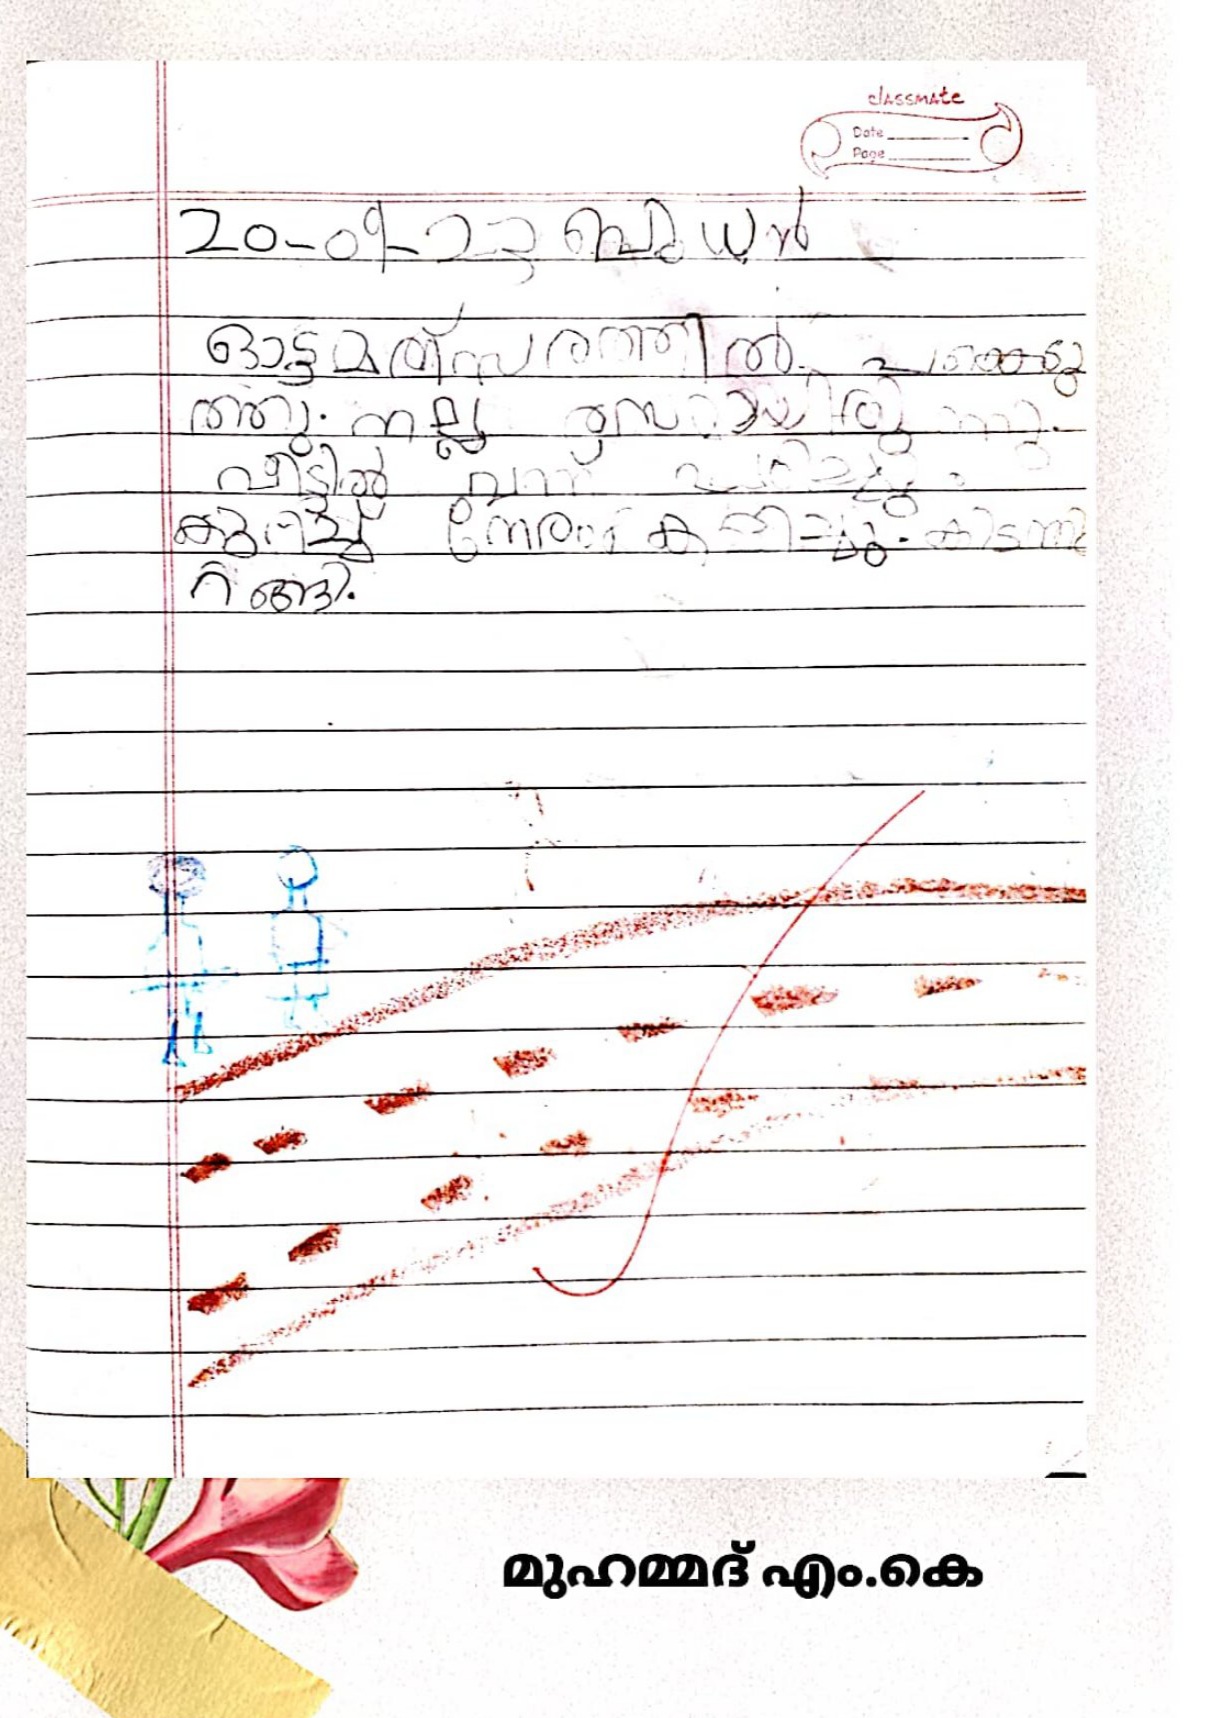 classmate
Date
Page
20-09-23 ബുധൻ
ഓട്ടമത്സരത്തിൽ പങ്കെടു
ത്തു. നല്ല രസമായിരുന്നു.
വീട്ടിൽ വന്ന് പഠിച്ചു.
കുറച്ച് നേരം കളിച്ചു. കിടന്നു
റങ്ങി.
മുഹമ്മദ് എം.കെ